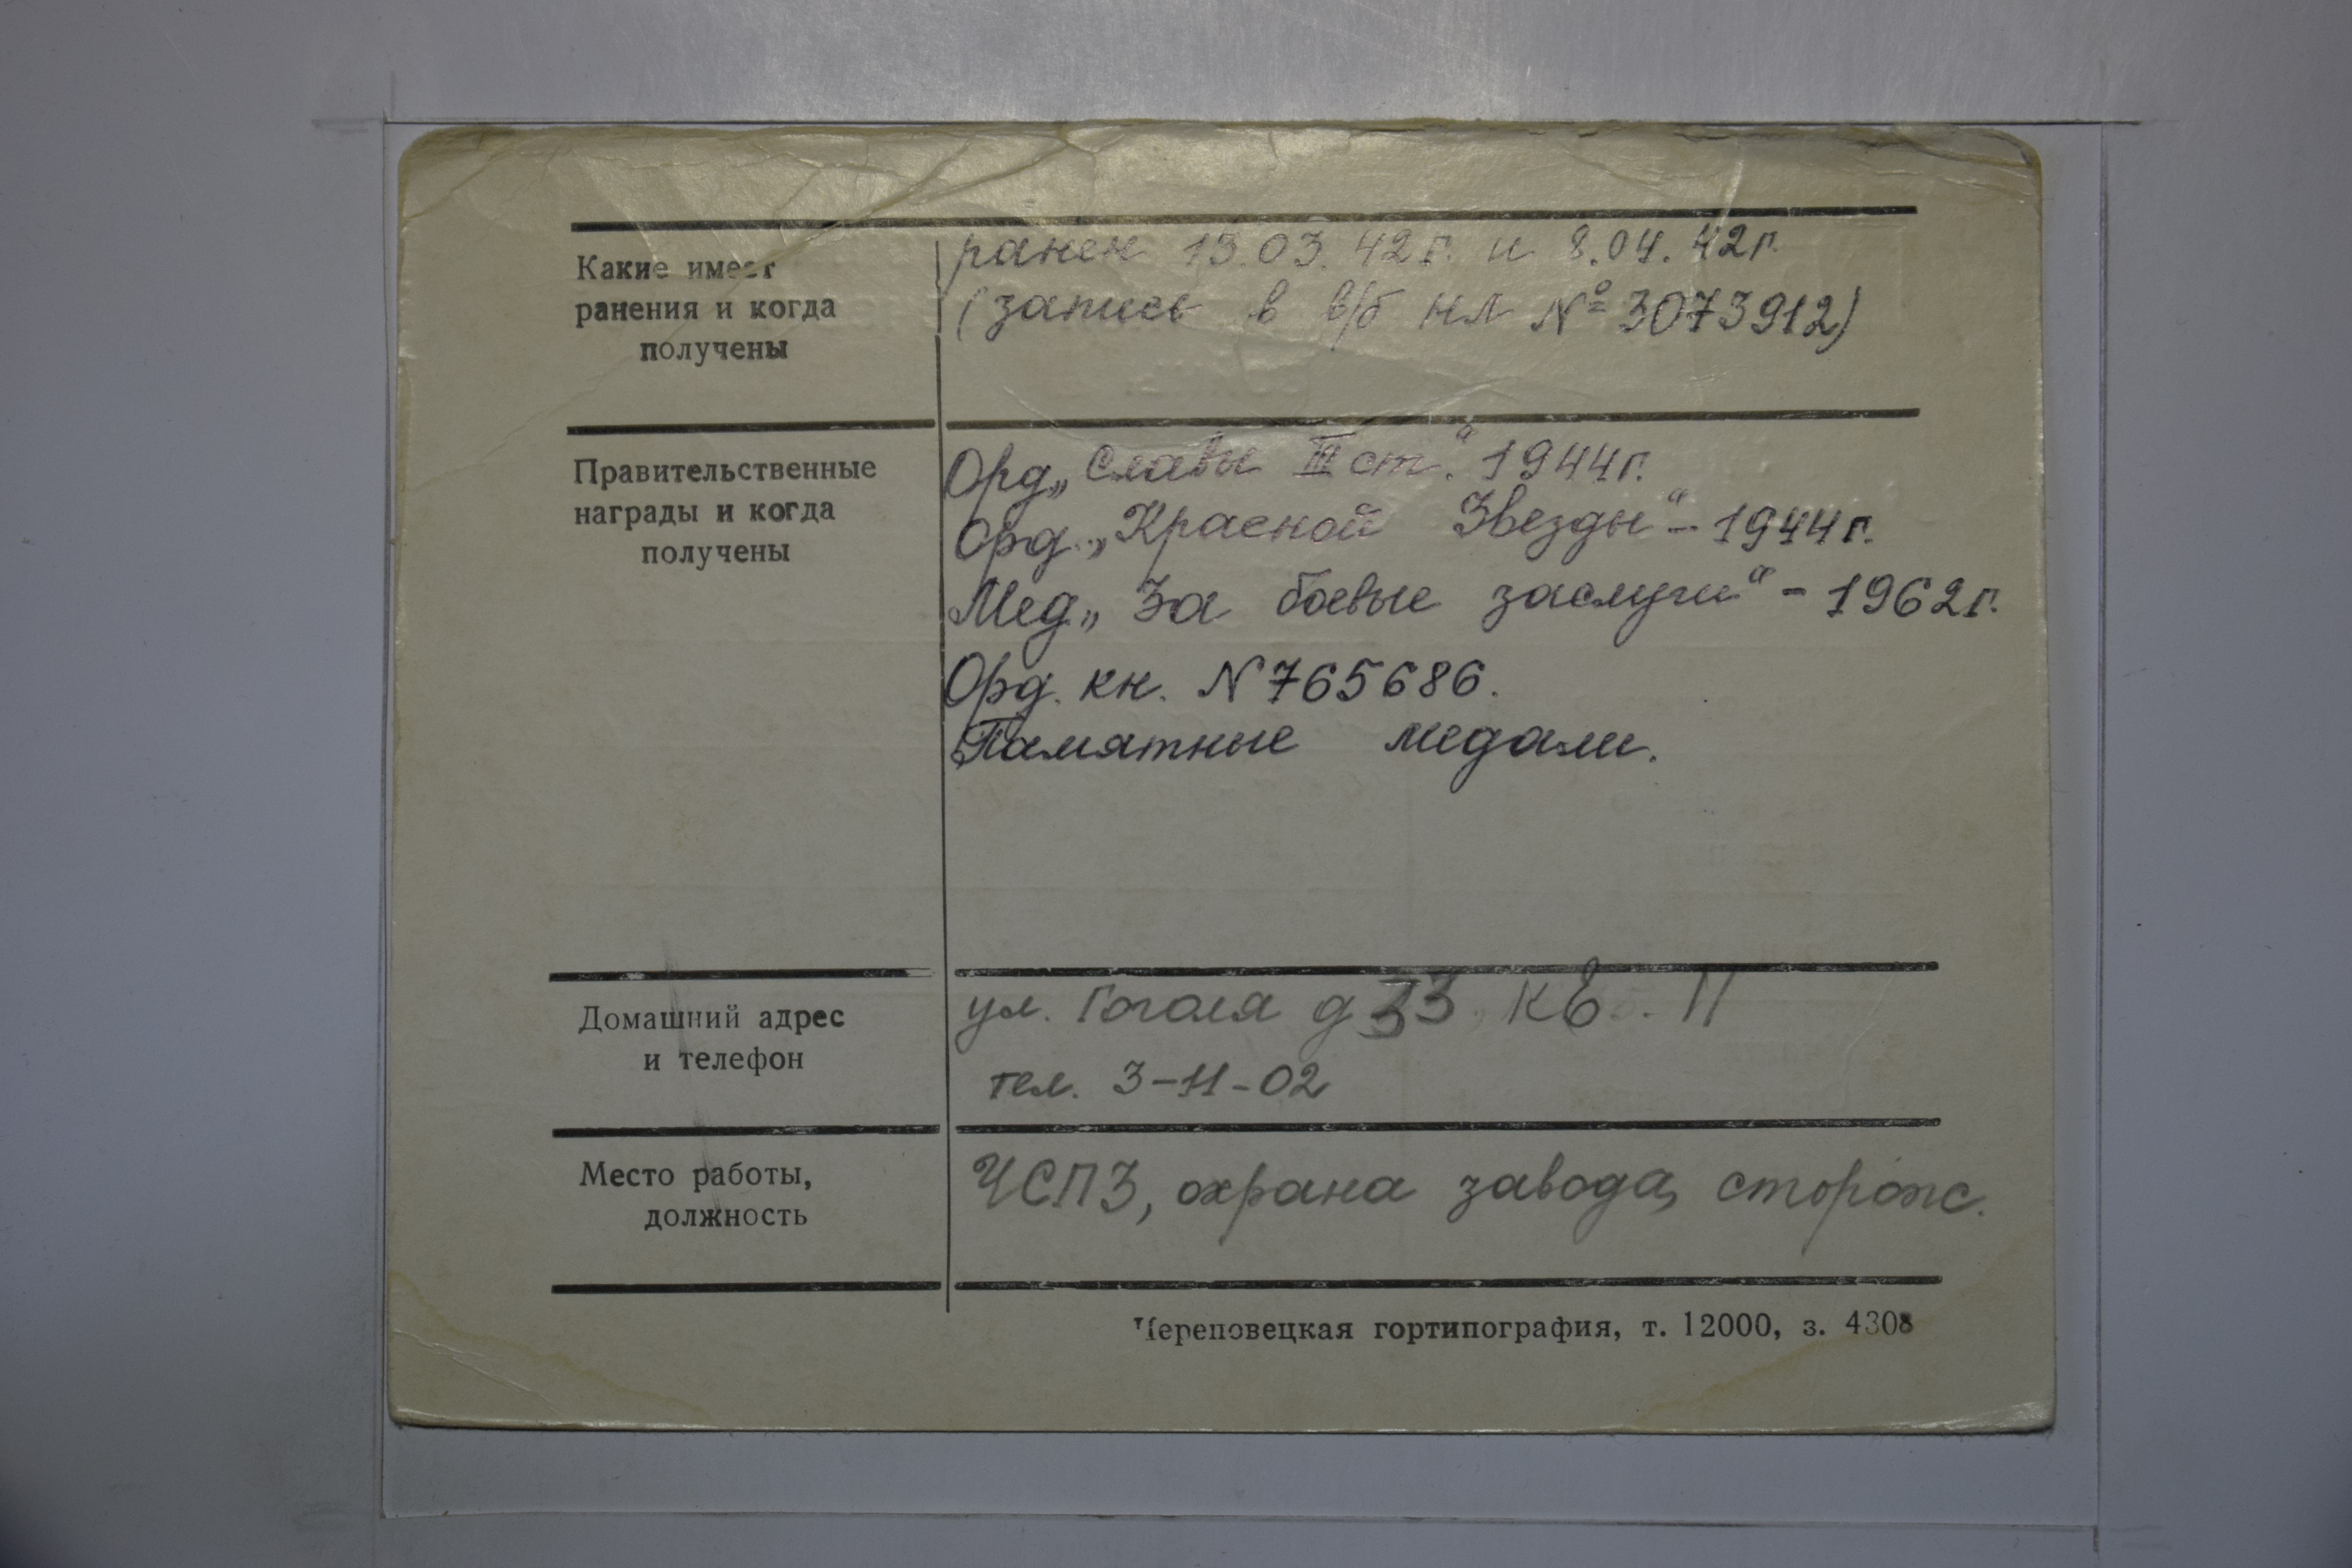 Какие имеет
ранения и когда
получены
ранен 13.03.42г. и 8.04.42г.
(запись в в/б НЛ №3073912)
Правительственные
награды и когда
получены
Орд „Славы III ст.“ 1944г.
Орд. „Красной Звезды“ - 1944г.
Мед „За боевые заслуги“ - 1962г.
Орд. кн. N765686.
Памятные медали.
Домашний адрес
и телефон
ул. Гоголя д 33, кв. 11
тел. 3-11-02
Место работы,
должность
ЧСПЗ, охрана завода, сторож.
Череповецкая гортипография, т. 12000, з. 4308